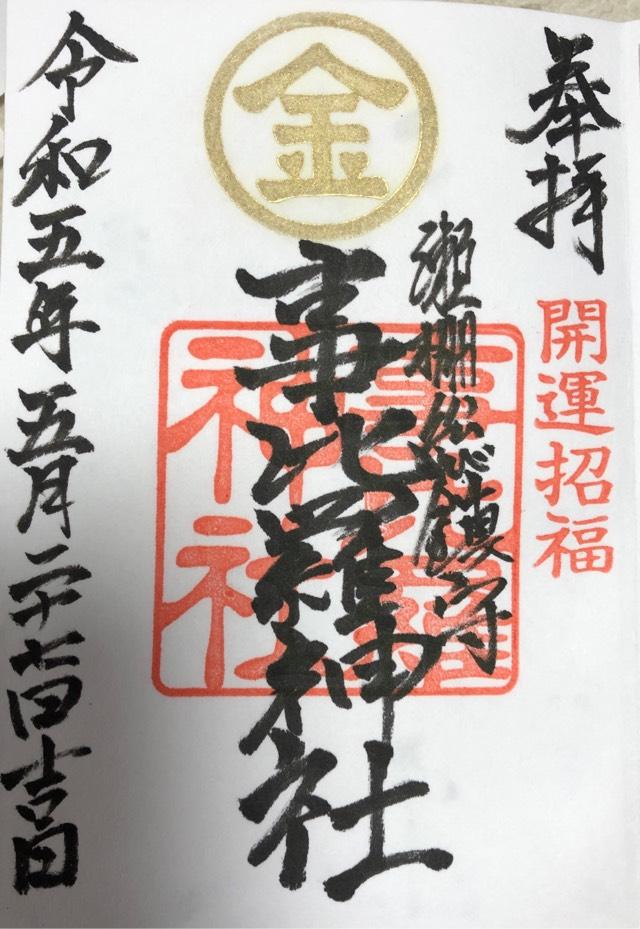 奉拝
開運招福
瀬棚総び鎮守
金
事比羅神社
事比羅
神社
令和五年五月二十七日吉日